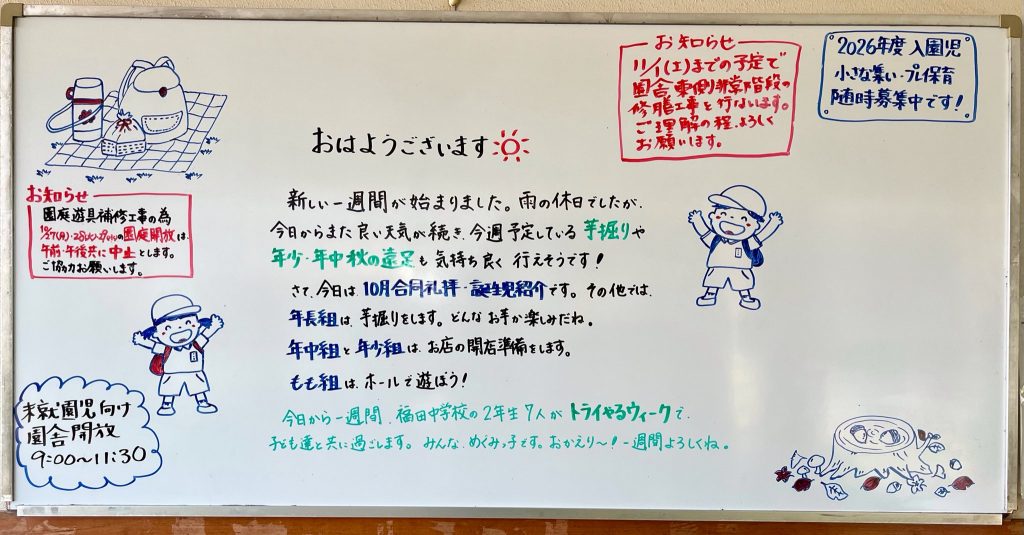 お知らせ
11/1(土)までの予定で
園舎東側非常階段の
修膳工事を行ないます。
ご理解の程、よろしく
お願いします。
2026年度 入園児
小さな集い・プレ保育
随時募集中です!
おはようございます
お知らせ
園庭遊具補修工事の為
10/27(月)・28(火)・29(水)の園庭開放は、
午前・午後共に中止とします。
ご協力お願いします。
新しい一週間が始まりました。雨の休日でしたが、
今日からまた良い天気が続き、今週予定している芋掘りや
年少・年中秋の遠足も気持ち良く行えそうです!
さて、今日は、10月合同礼拝・誕生児紹介です。その他では、
年長組は、芋掘りをします。どんなお芋か楽しみだね。
年中組と年少組は、お店の開店準備をします。
もも組は、ホールで遊ぼう!
今日から一週間、福田中学校の2年生7人がトライやるウィークで、
子ども達と共に過ごします。みんな、めぐみっ子です。おかえり〜!一週間よろしくね。
未就園児向け
園舎開放
9:00〜11:30